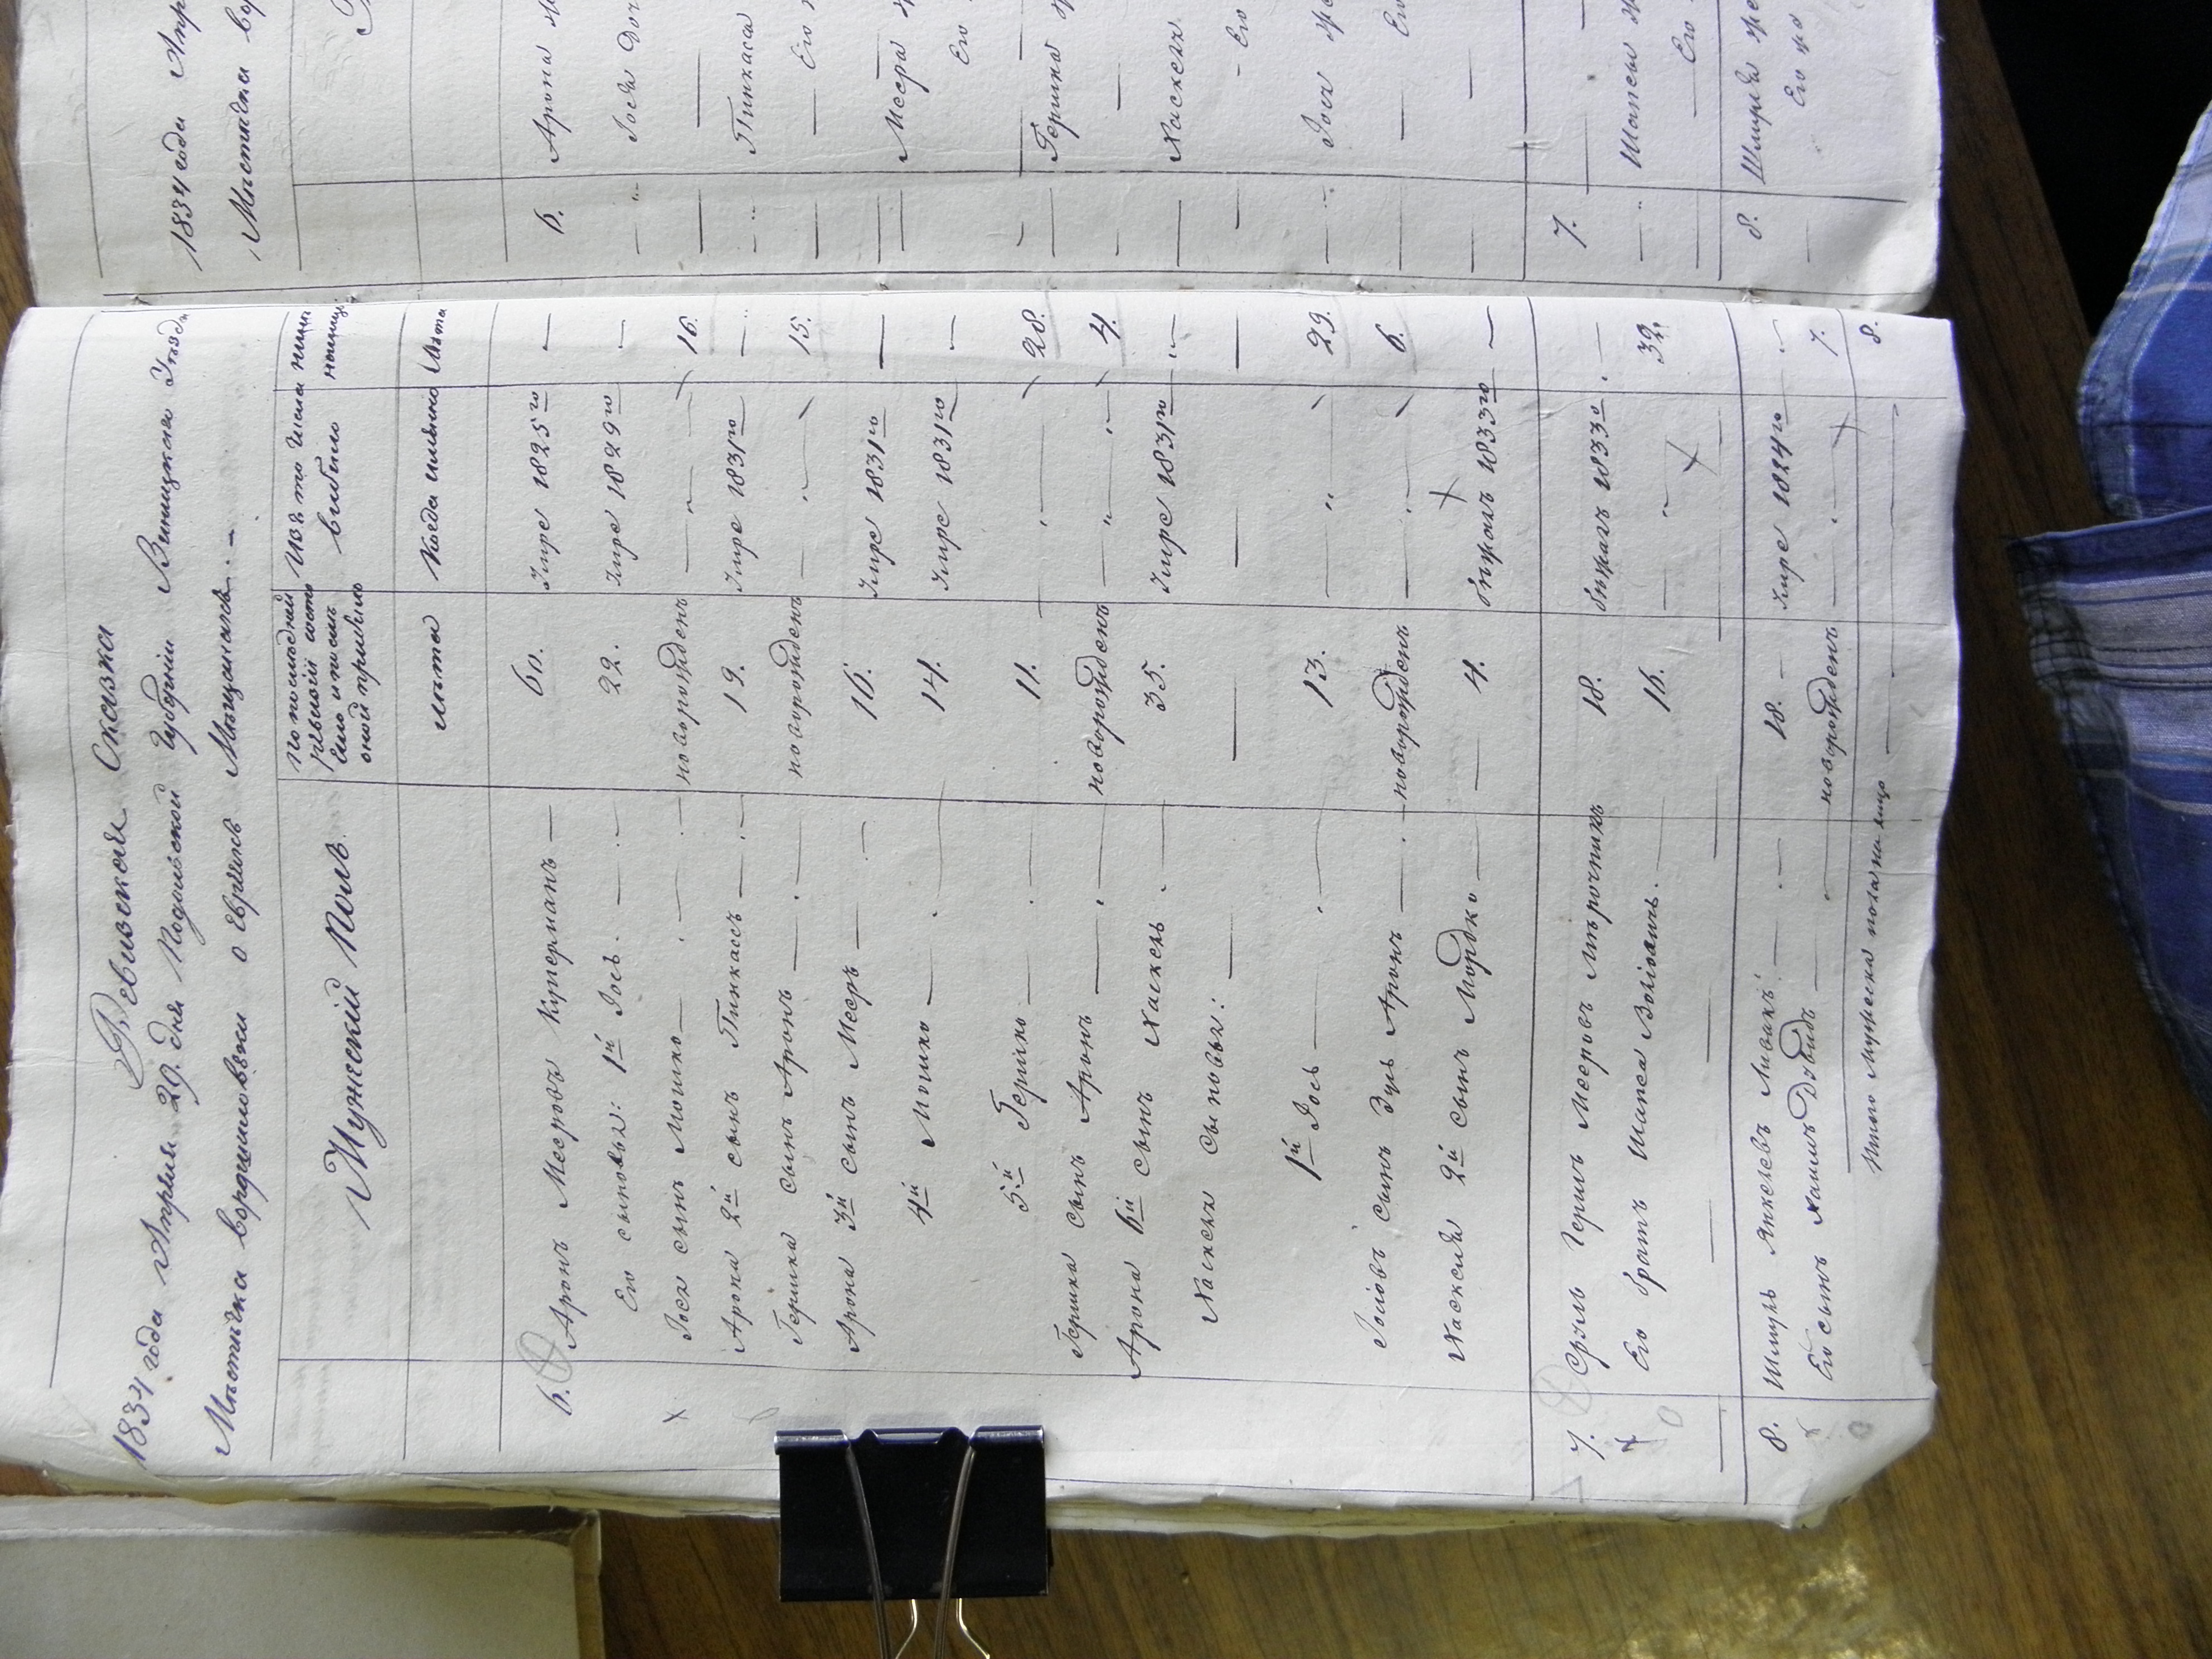 Ревизская Сказка
1834 года Апреля 29. дня Подольской Губернiи Винницкого Уезда
Местечка Ворошиловки о Евреяхъ Мещанахъ. —
Мужескiй Полъ.
По последней ревизiи состояло и после оной прибыло
Изъ того числа выбыло
ныне на лицо
лета
Когда имянно
Лета
6. Аронъ Мееровъ Киперманъ — 60. Умре 1825го —
Его сыновья: 1й Iось. — 22. Умре 1829го —
Iося сынъ Мошко — новорожденъ — " 16.
Арона 2й сынъ Пинкасъ — 19. Умре 1831го —
Гершка сынъ Аронъ — новорожденъ — " 15.
Арона 3й сынъ Мееръ — 16. Умре 1831го —
4й Мошко — 14. Умре 1831го —
5й Гершко — 11. — " 28.
Гершка сынъ Аронъ — новорожденъ — " 4.
Арона 6й сынъ Хаскель — 35. Умре 1831го —
Хаскеля сыновья: — — — —
1й Iось — 13. — " 29.
Iосiовъ сынъ Эль Аронъ — новорожденъ — " 6.
Хаскеля 2й сынъ Мордко — 4. бежалъ 1833го —
7. Сруль Гершъ Мееровъ 18. бежалъ 1833го —
Его братъ Шапса — 16. — " 32.
8. Шмуль Янкелевъ — 18. — Умре 1824го —
Его сынъ Хаимъ Давидъ — новорожденъ — 7.
Итого мужеска пола на лицо — 8.
1834 года Апр
Местечка Во
6. Арона
Iося доч
Пинкаса
Его
Меера
Его
Гершка
Хаскеля
Его
Iося же
Его
7.
Шапсы
Его
8. Шмуля же
Его же